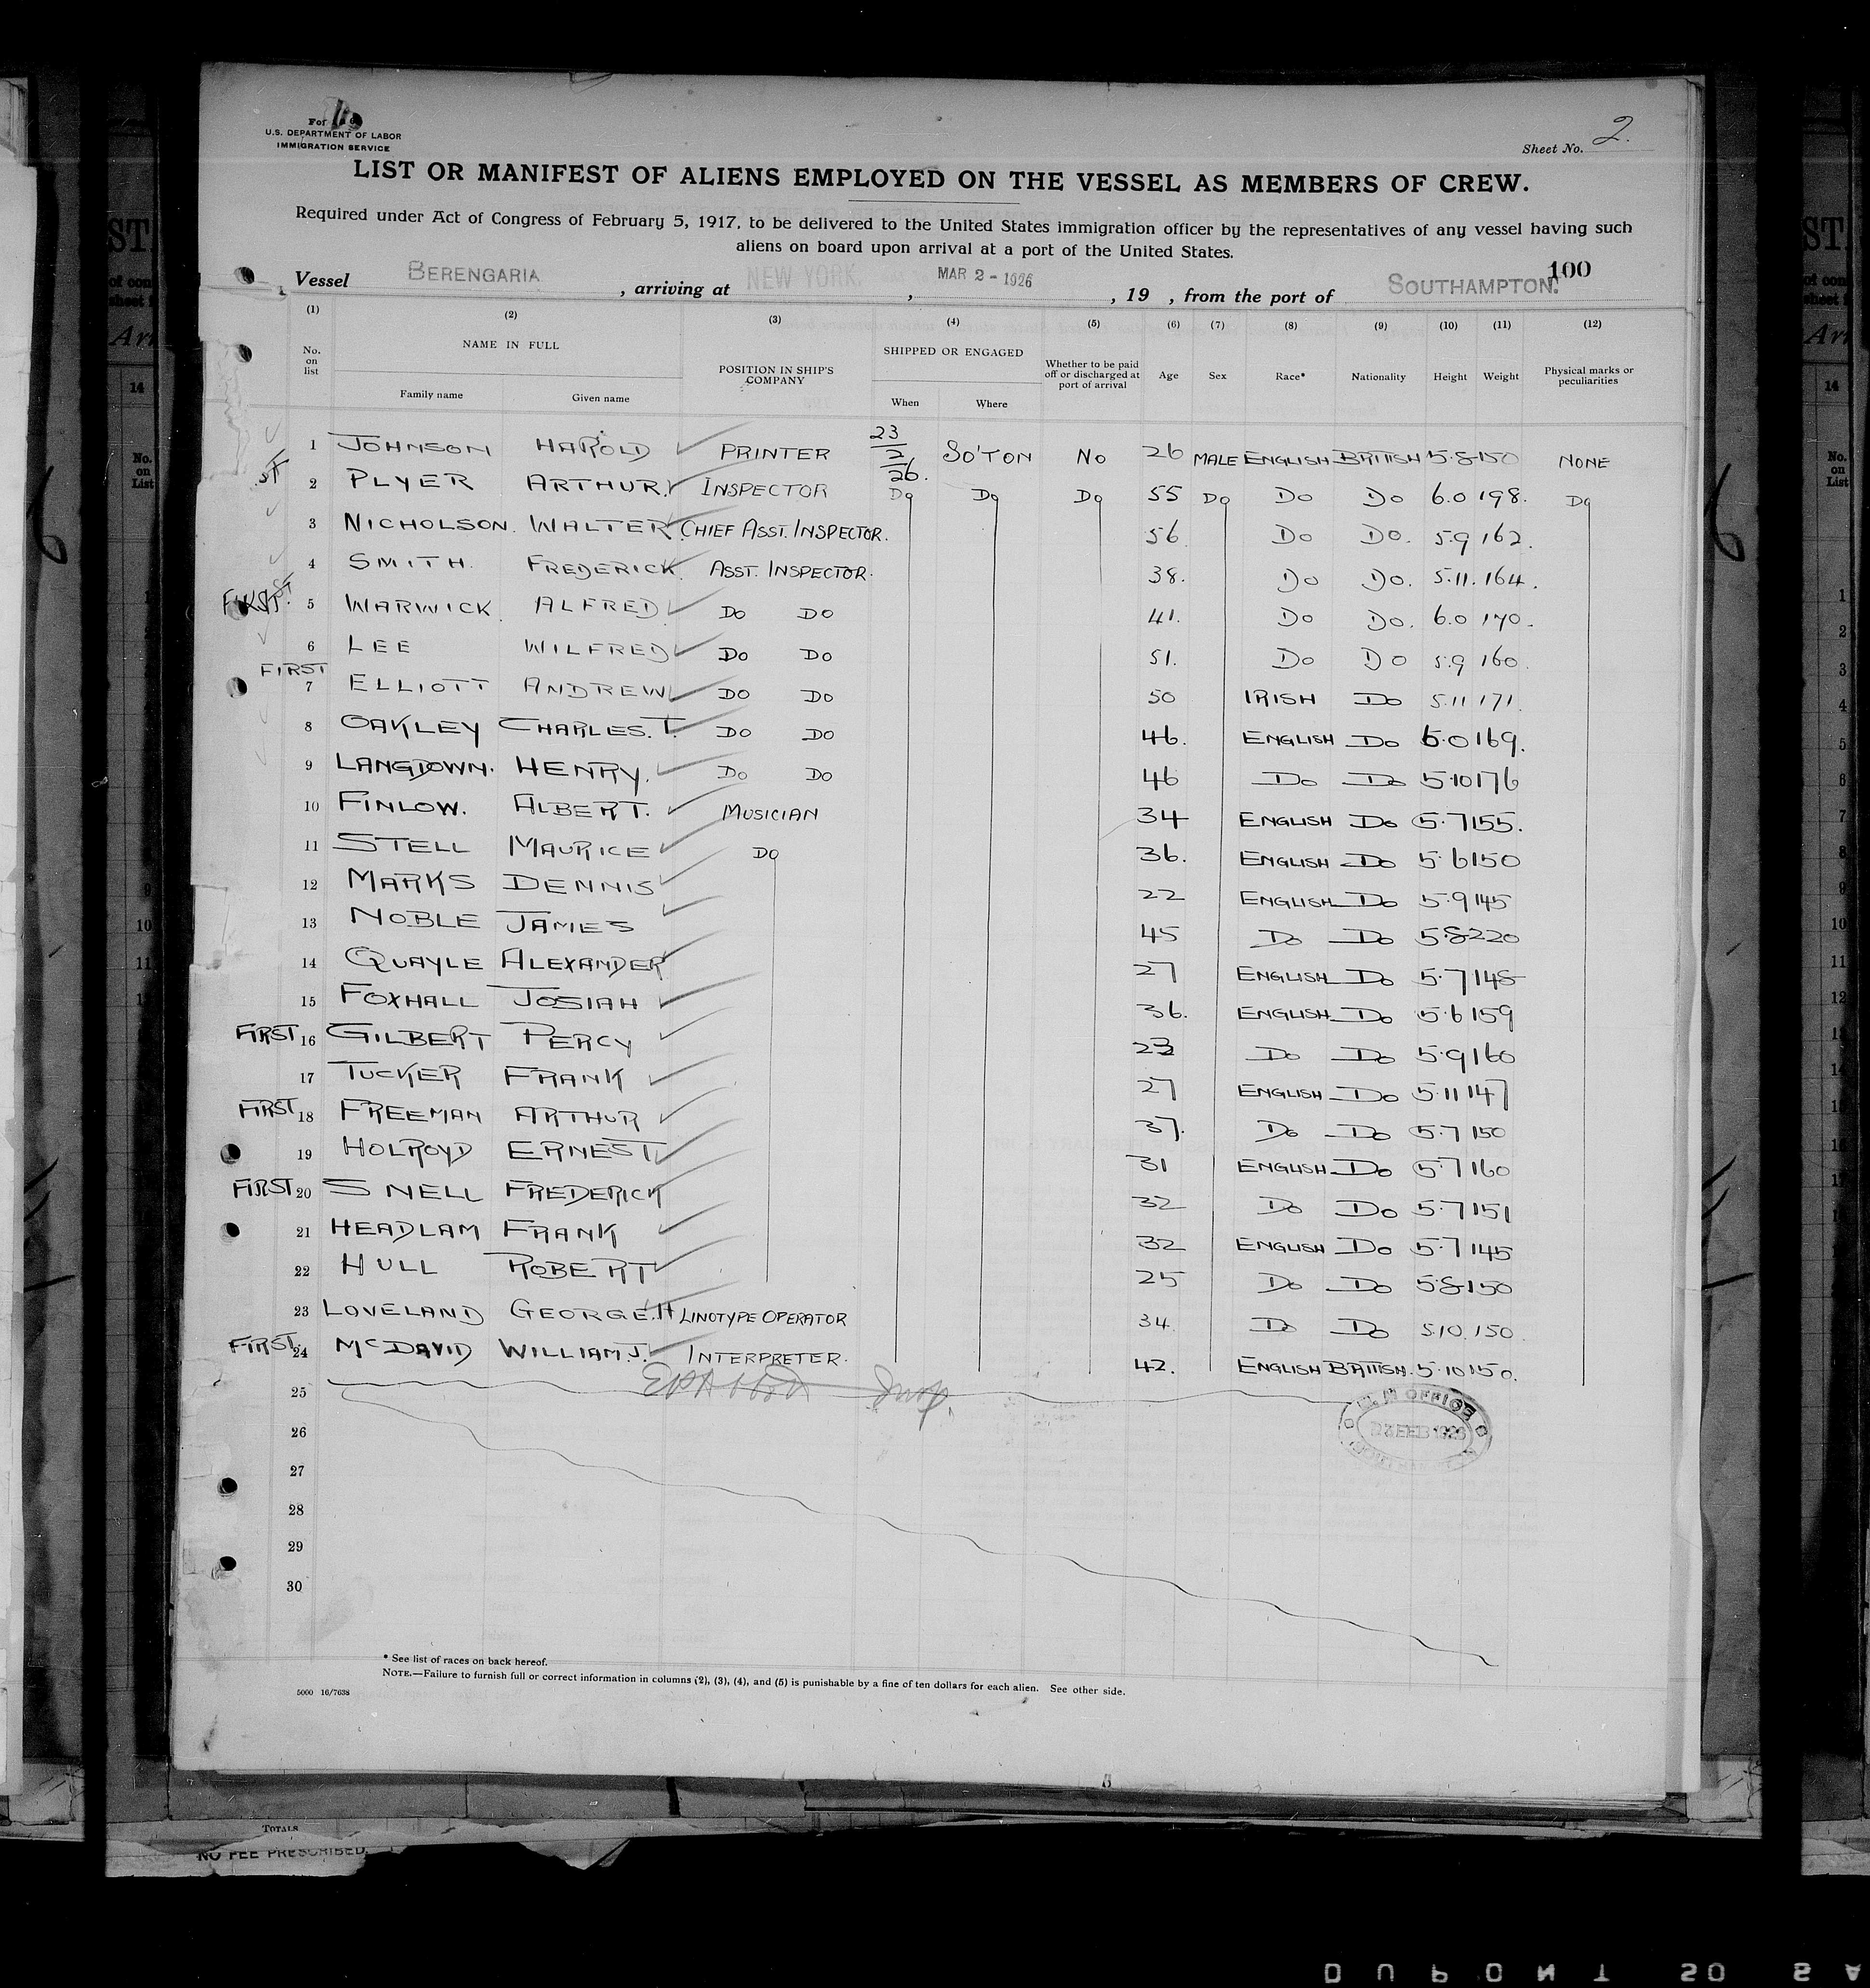 U.S. DEPARTMENT OF LABOR
IMMIGRATION SERVICE
Sheet No. 2.
LIST OR MANIFEST OF ALIENS EMPLOYED ON THE VESSEL AS MEMBERS OF CREW.
Required under Act of Congress of February 5, 1917, to be delivered to the United States immigration officer by the representatives of any vessel having such
aliens on board upon arrival at a port of the United States.
100
Vessel BERENGARIA, arriving at NEW YORK, MAR 2 - 1926, 19 , from the port of SOUTHAMPTON.
(1) (2) (3) (4) (5) (6) (7) (8) (9) (10) (11) (12)
No. on list NAME IN FULL Family name Given name POSITION IN SHIP'S COMPANY SHIPPED OR ENGAGED When Where Whether to be paid off or discharged at port of arrival Age Sex Race* Nationality Height Weight Physical marks or peculiarities
1 JOHNSON HAROLD PRINTER 23/2/26. SO'TON NO 26 MALE ENGLISH BRITISH 5.8 150 NONE
ST 2 PLYER ARTHUR. INSPECTOR DO DO DO 55 DO DO DO 6.0 198. DO
3 NICHOLSON. WALTER. CHIEF ASST. INSPECTOR. 56 DO DO. 5.9 162.
4 SMITH. FREDERICK. ASST. INSPECTOR. 38. DO DO. 5.11. 164.
FIRST. 5 WARWICK. ALFRED. DO DO 41. DO DO. 6.0 170.
6 LEE WILFRED DO DO 51. DO DO 5.9 160.
FIRST 7 ELLIOTT ANDREW DO DO 50 IRISH DO 5.11 171.
8 OAKLEY CHARLES. T. DO DO 46. ENGLISH DO 6.0 169.
9 LANGDOWN. HENRY. DO DO 46 DO DO 5.10 176
10 FINLOW. ALBERT. MUSICIAN 34 ENGLISH DO 5.7 155.
11 STELL MAURICE DO 36. ENGLISH DO 5.6 150
12 MARKS DENNIS 22 ENGLISH DO 5.9 145
13 NOBLE JAMES 45 DO DO 5.8 220
14 QUAYLE ALEXANDER 27 ENGLISH DO 5.7 148
15 FOXHALL JOSIAH 36. ENGLISH DO 5.6 159
FIRST 16 GILBERT PERCY 23 DO DO 5.9 160
17 TUCKER FRANK 27 ENGLISH DO 5.11 147
FIRST 18 FREEMAN ARTHUR 37. DO DO 5.7 150
19 HOLROYD ERNEST 31 ENGLISH DO 5.7 160
FIRST 20 SNELL FREDERICK 32 DO DO 5.7 151
21 HEADLAM FRANK 32 ENGLISH DO 5.7 145
22 HULL ROBERT 25 DO DO 5.8 150
23 LOVELAND GEORGE. H LINOTYPE OPERATOR 34 DO DO 5.10. 150.
FIRST 24 McDAVID WILLIAM. J. INTERPRETER. 42. ENGLISH BRITISH. 5.10 150.
25
OFFICE
23 FEB 1926
26
27
28
29
30
* See list of races on back hereof.
NOTE.—Failure to furnish full or correct information in columns (2), (3), (4), and (5) is punishable by a fine of ten dollars for each alien. See other side.
5000 16/7638
TOTALS
NO FEE PRESCRIBED.
14
No. on List
DUPONT